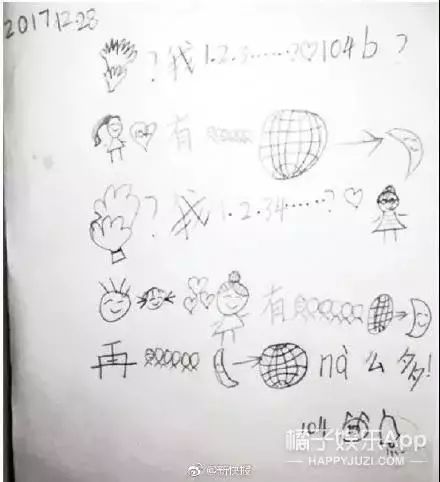 2017.12.28
？我1.2.3……？♡104b？
104 有
？我1.2.34……？♡
有
再 nà么多！
104
橘子娱乐App
HAPPYJUZI.COM
@新快报